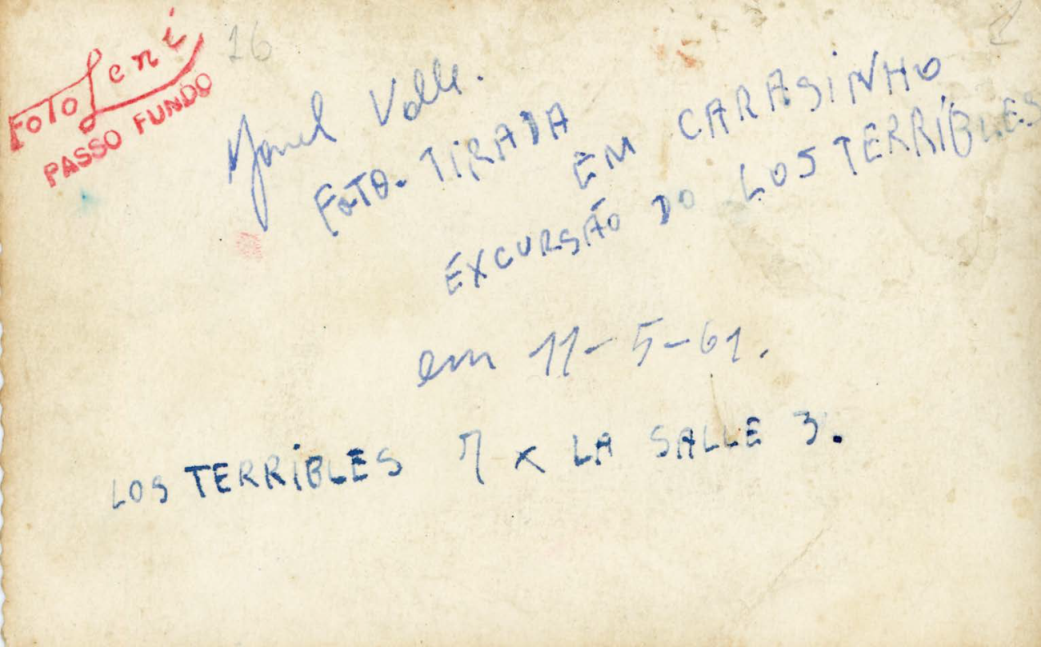 Foto Leni
PASSO FUNDO
16
Valle.
FOTO. TIRADA
EM CARASINHO
EXCURSÃO DO LOS TERRIBLES
em 11-5-61.
LOS TERRIBLES 7 x LA SALLE 3.